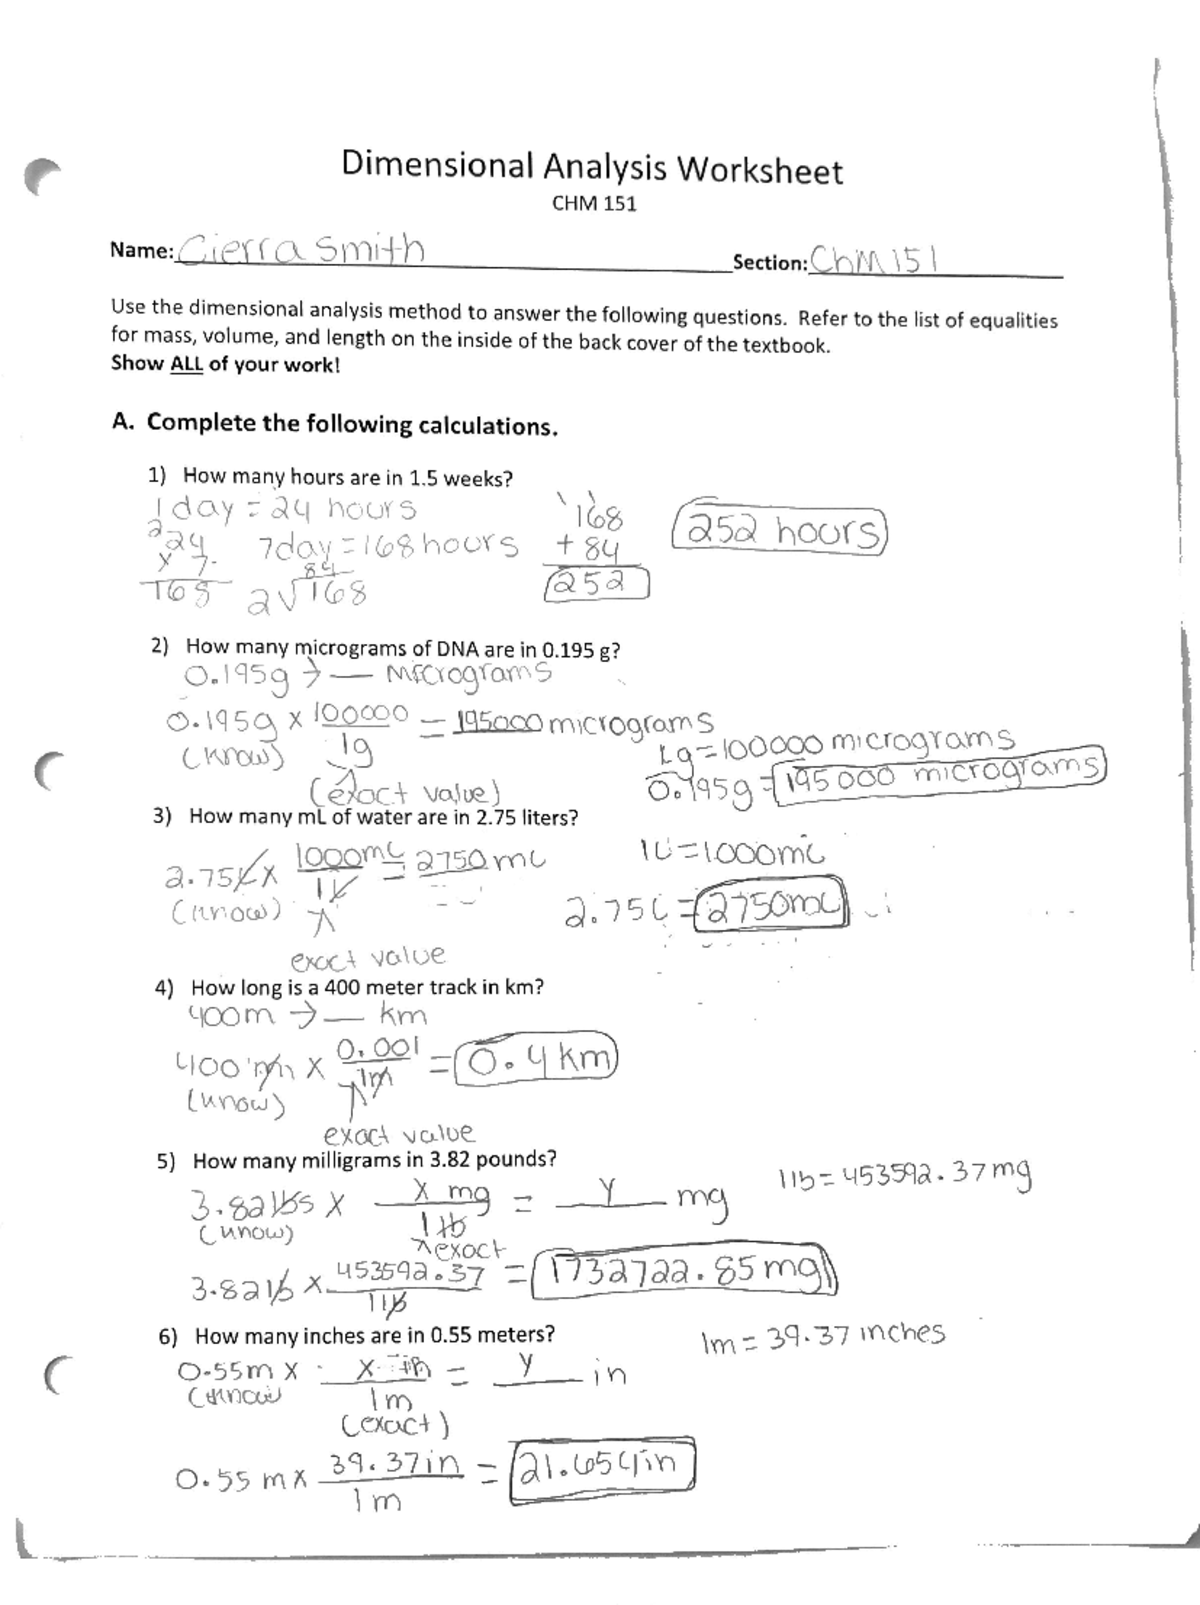 Dimensional Analysis Worksheet
CHM 151
Name: Cierra Smith Section: ChM 151
Use the dimensional analysis method to answer the following questions. Refer to the list of equalities
for mass, volume, and length on the inside of the back cover of the textbook.
Show ALL of your work!
A. Complete the following calculations.
1) How many hours are in 1.5 weeks?
1 day = 24 hours
2
24
x 7
168
7day = 168 hours
84
2√168
11
168
+ 84
252
252 hours
2) How many micrograms of DNA are in 0.195 g?
0.195g → — Micrograms
0.195g x 100000 / 1g = 195000 micrograms
(know)
(exact value)
1g = 100000 micrograms
0.195g = 195000 micrograms
3) How many mL of water are in 2.75 liters?
2.75L x 1000mL / 1L = 2750 mL
(know)
exact value
1L = 1000mL
2.75L = 2750mL
4) How long is a 400 meter track in km?
400m → — km
400m x 0.001 / 1m = 0.4 km
(know)
exact value
5) How many milligrams in 3.82 pounds?
3.82 lbs x X mg / 1 lb = Y mg
(know)
exact
1lb = 453592.37mg
3.82lb x 453592.37 / 1lb = 1732722.85mg
6) How many inches are in 0.55 meters?
1m = 39.37 inches
0.55m x X in / 1m = Y in
(know
(exact)
0.55 m x 39.37in / 1m = 21.654in